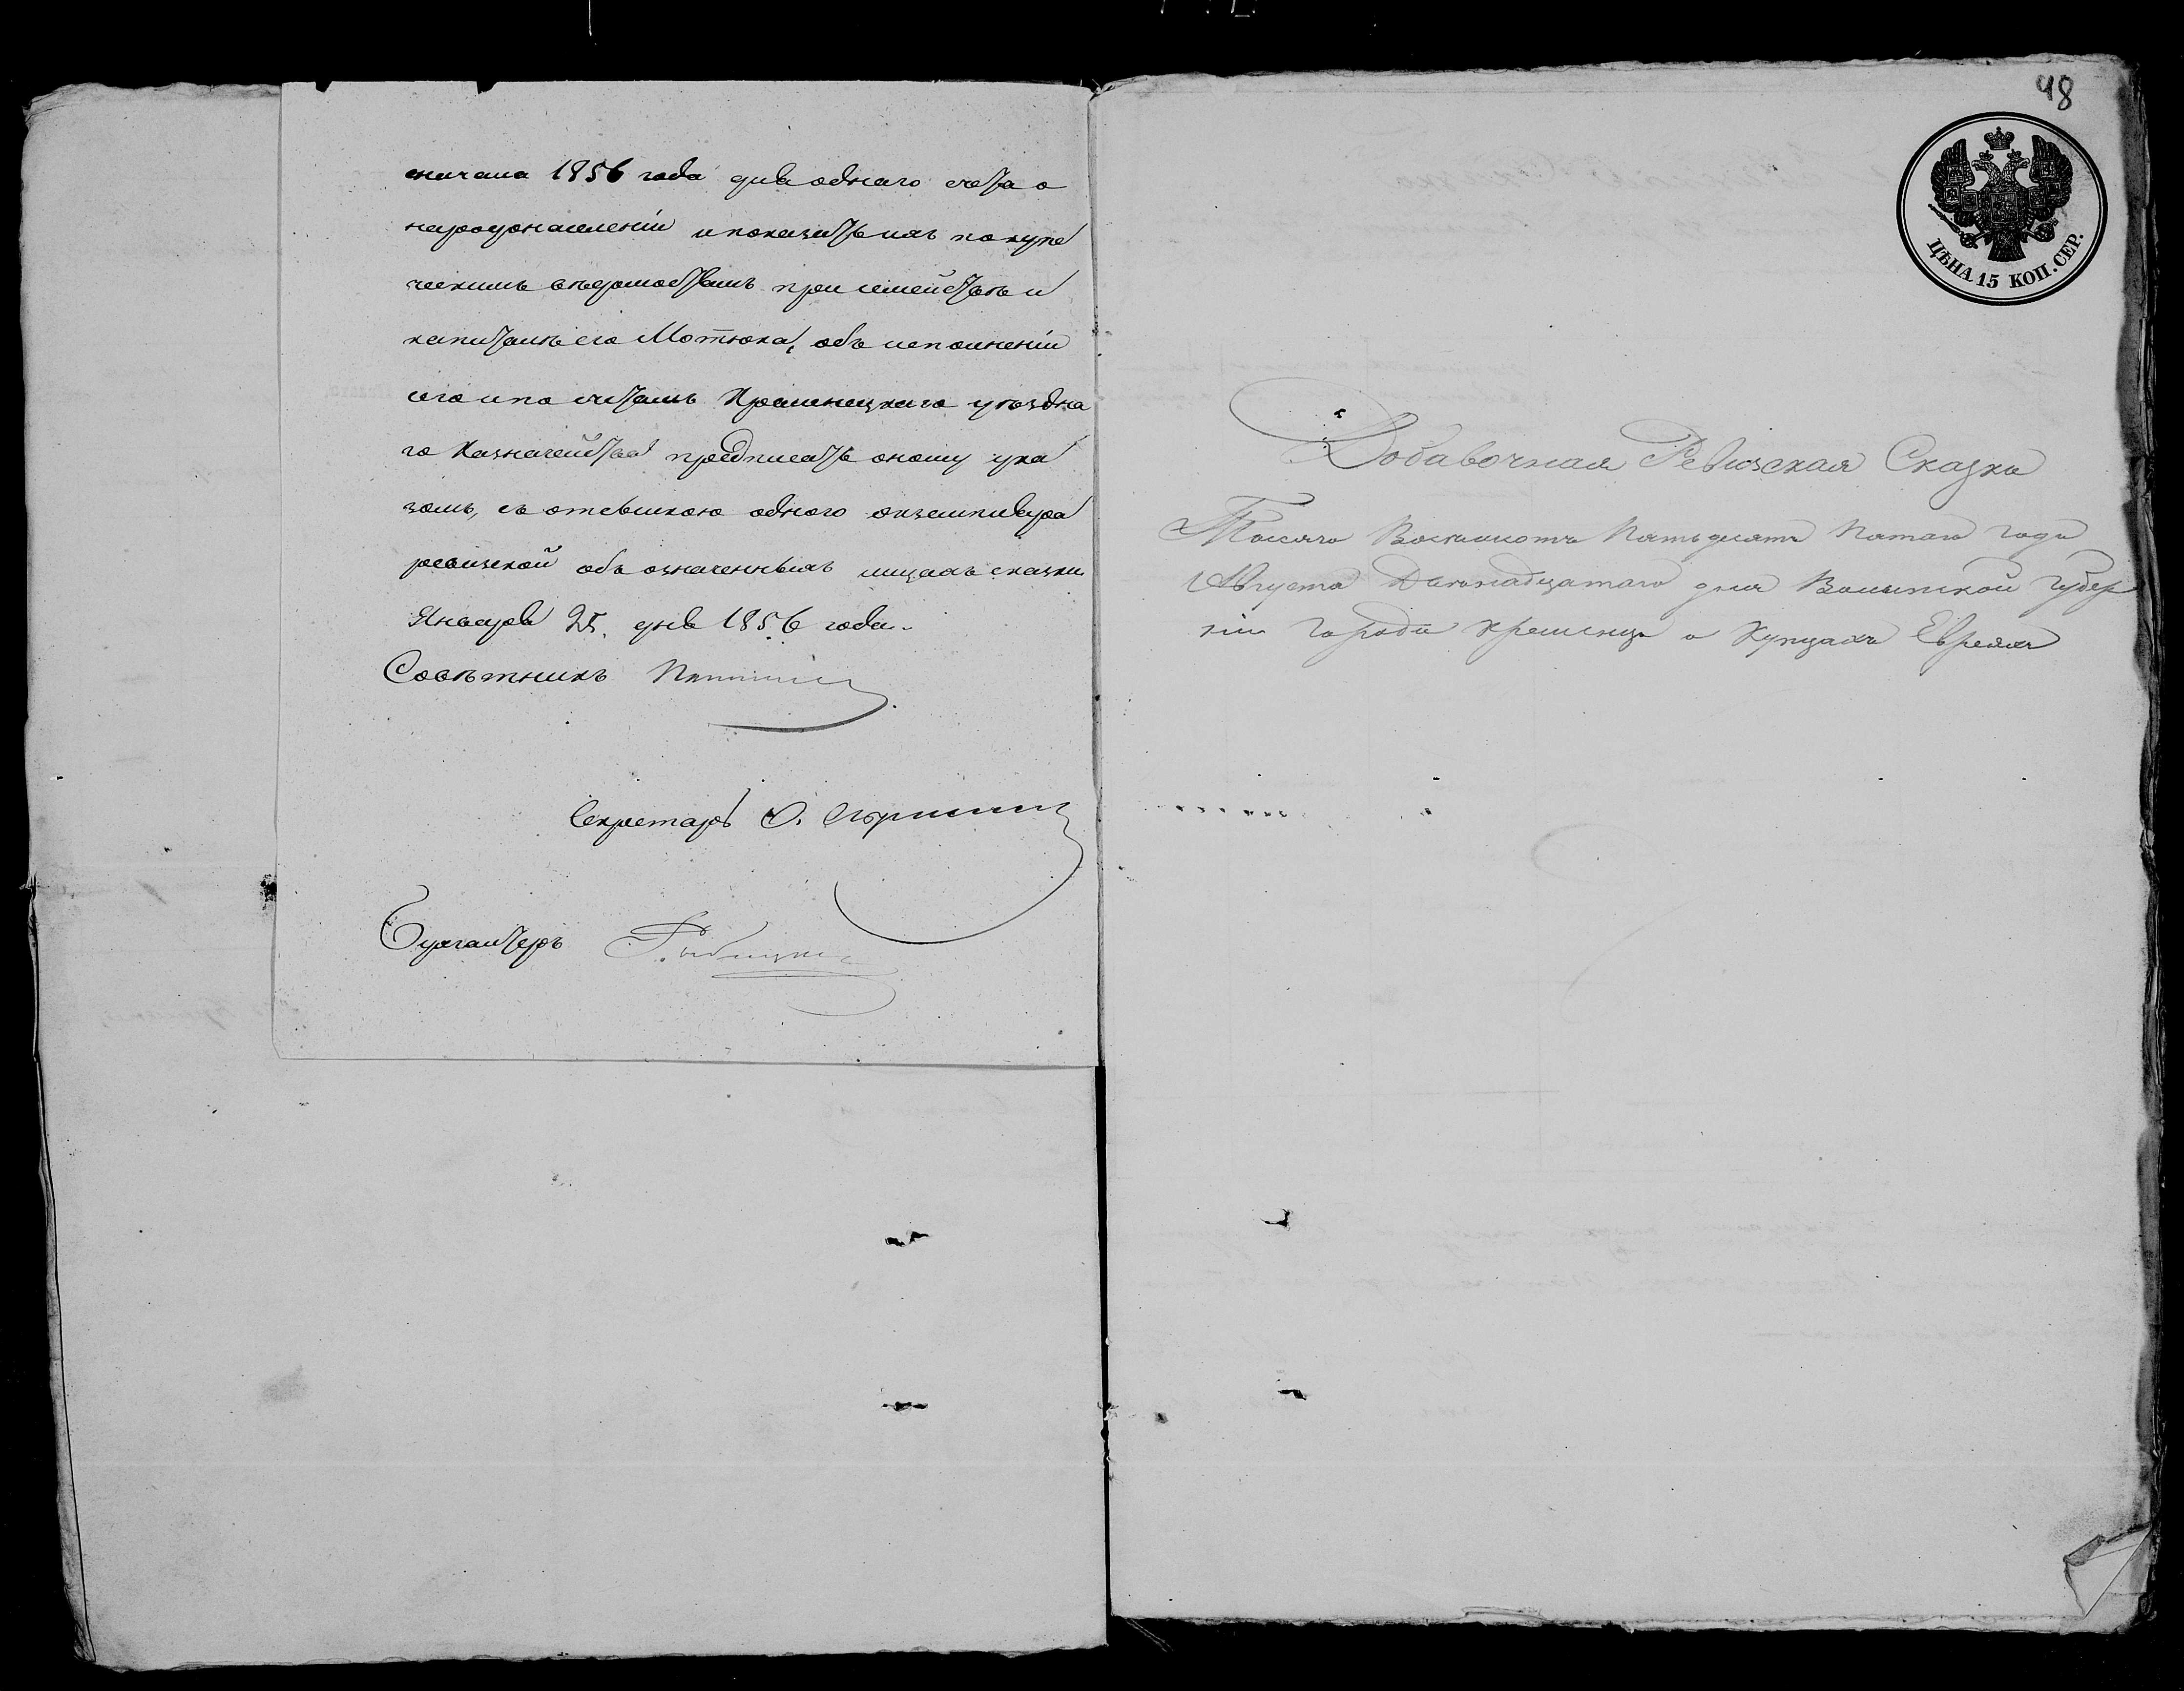 съ начала 1856 года для однаго счета о
народонаселеніи и показать ихъ по купе
ческимъ вѣдомостямъ при семействѣ и
капиталѣ его Мотюка, объ исполненіи
сего и по счетамъ Кременецкаго уѣздна
го Казначейства предписать оному ука
зомъ, съ отсылкою одного экземпляра
ревизской объ означенныхъ лицахъ сказки
Января 25 дня 1856 года.
Совѣтникъ
Секретарь
Бухгалтеръ
48
ЦѢНА 15 КОП. СЕР.
Добавочная Ревизская Сказка
Тысяча Восемьсотъ Пятьдесятъ Пятаго года
Августа Двенадцатаго дня Волынской Губер
ніи Города Кременца о Купцахъ Евреяхъ